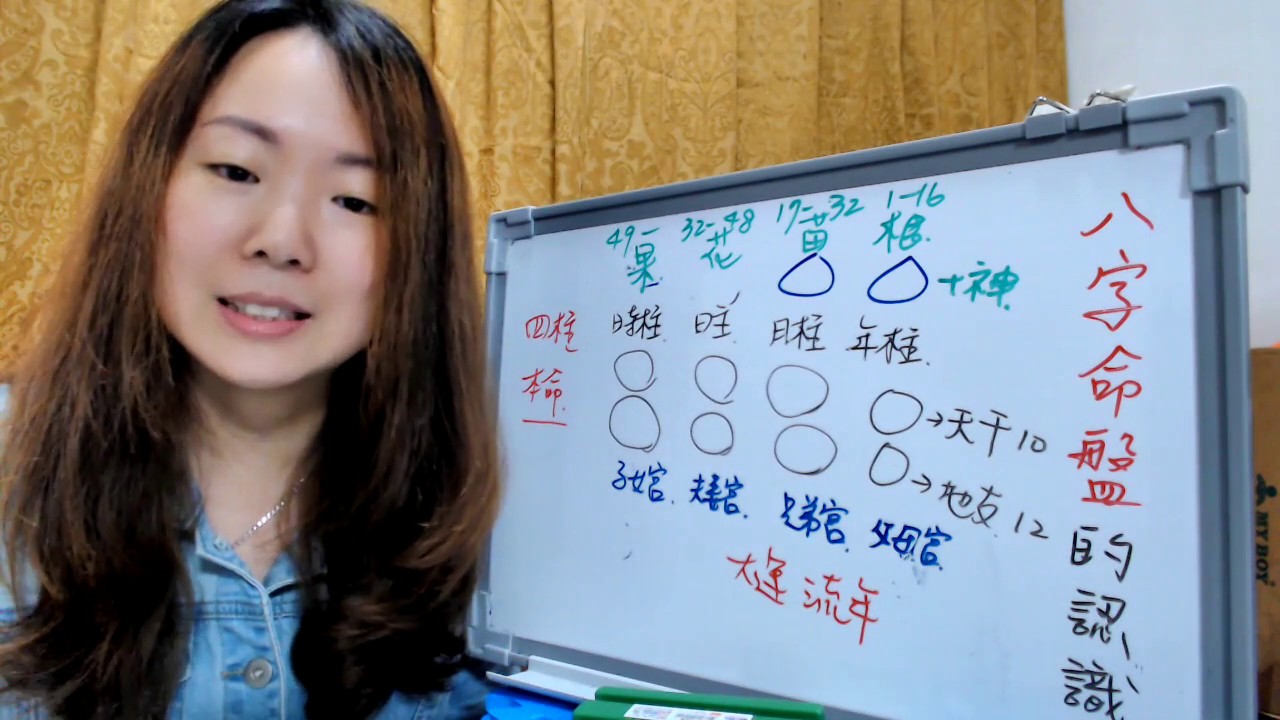 八字命盤的認識
49- 32-48 17-32 1-16
果 花 苗 根
十神
四柱 時柱 日主 月柱 年柱
本命
→天干10
→地支12
子女宮 夫妻宮 兄弟宮 父母宮
大運 流年
MY BOY